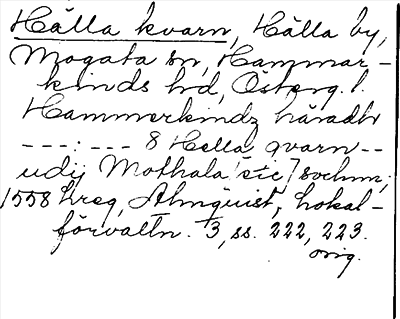 Hälla kvarn, Hälla by,
Mogata sn, Hammar-
kinds hd, Österg. l.
Hammerkindz häradh
---:--- 8 Hella qvarn --
udij Mothala [sic] sochnn;
1558 hreg, Almquist, Lokal-
förvaltn. 3, ss. 222, 223.
orig.